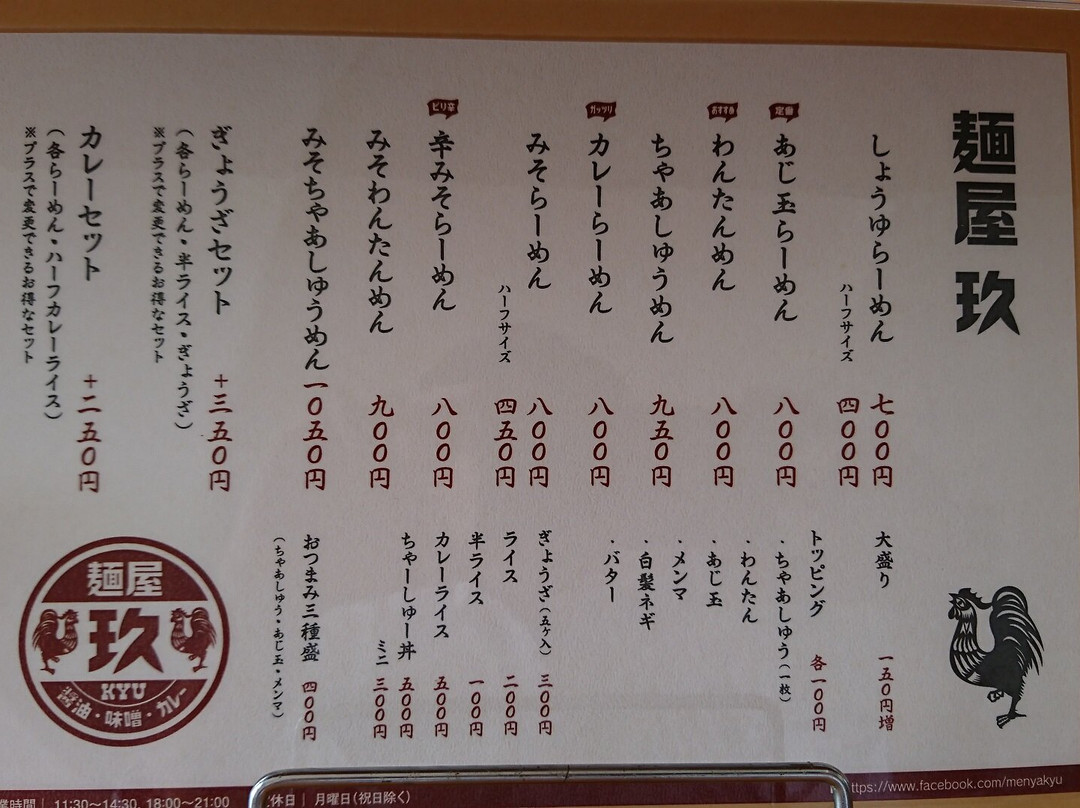 麺屋 玖
しょうゆらーめん 七〇〇円
ハーフサイズ 四〇〇円
定番
あじ玉らーめん 八〇〇円
おすすめ
わんたんめん 八〇〇円
ちゃあしゅうめん 九五〇円
ガッツリ
カレーらーめん 八〇〇円
みそらーめん 八〇〇円
ハーフサイズ 四五〇円
ピリ辛
辛みそらーめん 八〇〇円
みそわんたんめん 九〇〇円
みそちゃあしゅうめん 一〇五〇円
ぎょうざセット +三五〇円
(各らーめん・半ライス・ぎょうざ)
※プラスで変更できるお得なセット
カレーセット +二五〇円
(各らーめん・ハーフカレーライス)
※プラスで変更できるお得なセット
大盛り 一五〇円増
トッピング 各一〇〇円
・ちゃあしゅう(一枚)
・わんたん
・あじ玉
・メンマ
・白髪ネギ
・バター
ぎょうざ(五ケ入) 三〇〇円
ライス 二〇〇円
半ライス 一〇〇円
カレーライス 五〇〇円
ちゃーしゅー丼 五〇〇円
ミニ 三〇〇円
おつまみ三種盛 四〇〇円
(ちゃあしゅう・あじ玉・メンマ)
麺屋
玖
KYU
醤油・味噌・カレー
業時間 | 11:30〜14:30, 18:00〜21:00
休日 | 月曜日(祝日除く)
ttps://www.facebook.com/menyakyu